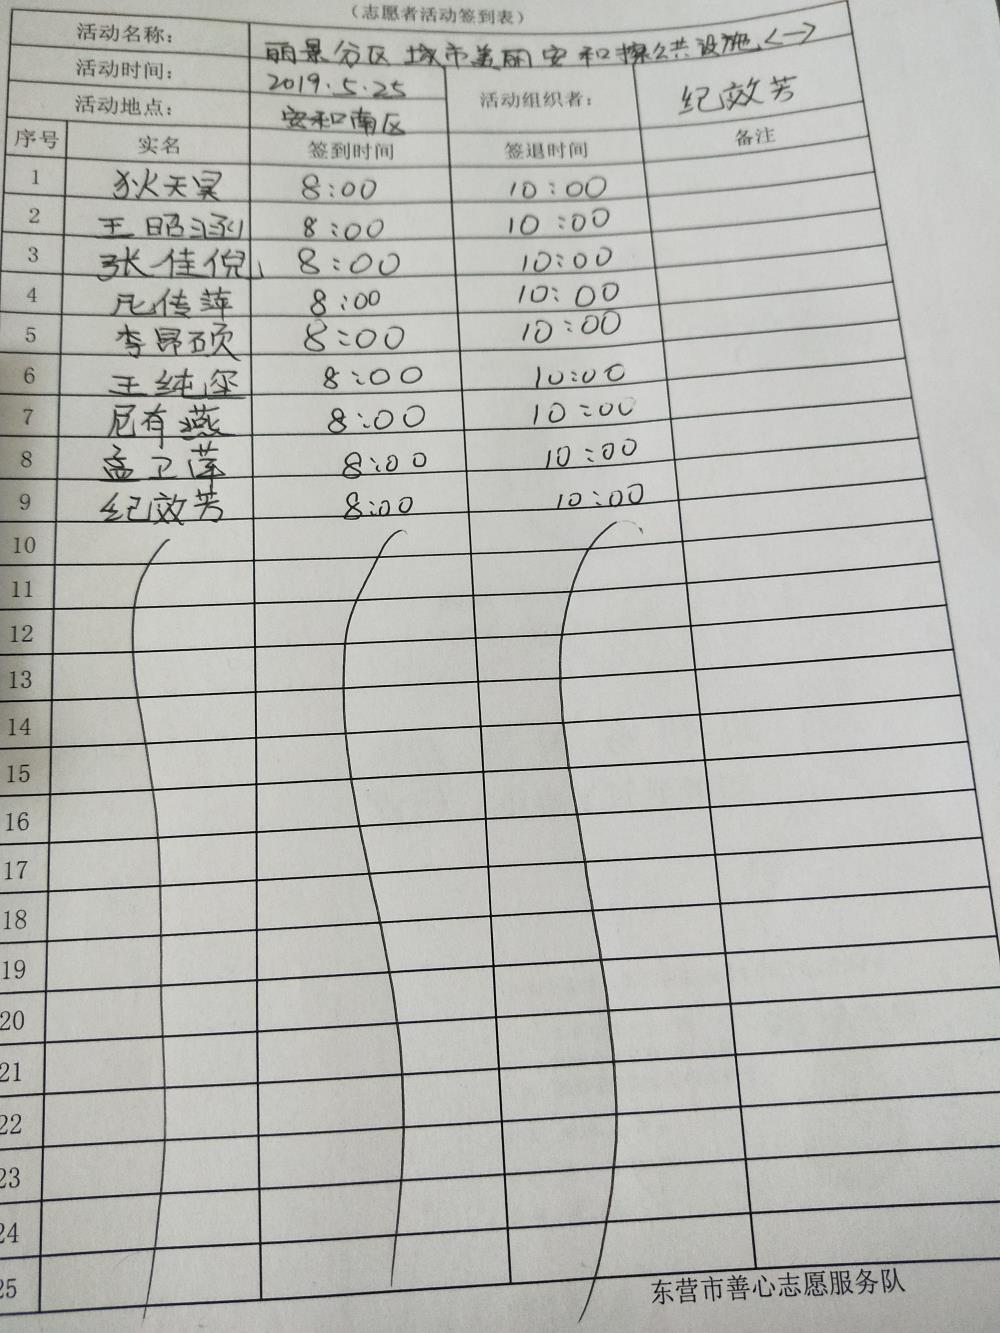 （志愿者活动签到表）
活动名称： 丽景分区 城市美丽 安和擦公共设施<一>
活动时间： 2019.5.25 活动组织者： 纪效芳
活动地点： 安和南区
序号 实名 签到时间 签退时间 备注
1 狄天昊 8:00 10:00
2 王昭涵 8:00 10:00
3 张佳倪 8:00 10:00
4 尼传萍 8:00 10:00
5 李昂硕 8:00 10:00
6 王纯玺 8:00 10:00
7 尼有燕 8:00 10:00
8 孟卫莲 8:00 10:00
9 纪效芳 8:00 10:00
10
11
12
13
14
15
16
17
18
19
20
21
22
23
24
25
东营市善心志愿服务队